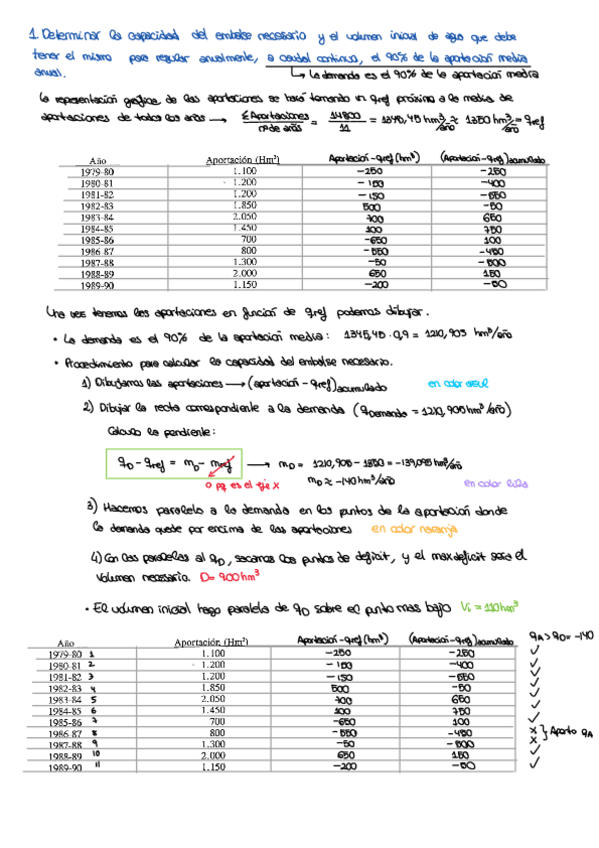 1. Determinar la capacidad del embalse necesario y el volumen inicial de agua que debe
tener el mismo para regular anualmente, a caudal continuo, el 90% de la aportación media
anual.
↳ La demanda es el 90% de la aportación media
La representación gráfica de las aportaciones se hará tomando un qref próximo a la media de
aportaciones de todos los años → ΣAportaciones/nº de años = 14800/11 = 1345,45 hm³/año ≈ 1350 hm³/año = qref
Año Aportación (Hm³) Aportación-qref (hm³) (Aportación-qref)acumulado
1979-80 1.100 -250 -250
1980-81 1.200 -150 -400
1981-82 1.200 -150 -550
1982-83 1.850 500 -50
1983-84 2.050 700 650
1984-85 1.450 100 750
1985-86 700 -650 100
1986-87 800 -550 -450
1987-88 1.300 -50 -500
1988-89 2.000 650 150
1989-90 1.150 -200 -50
Una vez tenemos las aportaciones en función de qref podemos dibujar.
• La demanda es el 90% de la aportación media: 1345,45 · 0,9 = 1210,905 hm³/año
• Procedimiento para calcular la capacidad del embalse necesario.
1) Dibujamos las aportaciones → (aportación-qref)acumulado en color azul
2) Dibujar la recta correspondiente a la demanda (qDemanda = 1210,905 hm³/año)
Calculo la pendiente:
qD - qref = mD - mref → mD = 1210,905 - 1350 = -139,095 hm³/año
0 pq es el eje X mD ≈ -140 hm³/año en color lila
3) Hacemos paralela a la demanda en los puntos de la aportación donde
la demanda quede por encima de las aportaciones en color naranja
4) Con las paralelas al qD, sacamos los puntos de deficit, y el max deficit será el
volumen necesario. D= 900 hm³
• El volumen inicial hago paralela de qD sobre el punto más bajo Vi = 110 hm³
Año Aportación (Hm³) Aportación-qref (hm³) (Aportación-qref)acumulado qA > qD = -140
1979-80 1 1.100 -250 -250 ✓
1980-81 2 1.200 -150 -400 ✓
1981-82 3 1.200 -150 -550 ✓
1982-83 4 1.850 500 -50 ✓
1983-84 5 2.050 700 650 ✓
1984-85 6 1.450 100 750 ✓
1985-86 7 700 -650 100 ✓
1986-87 8 800 -550 -450 x } Aporto qA
1987-88 9 1.300 -50 -500 x
1988-89 10 2.000 650 150 ✓
1989-90 11 1.150 -200 -50 ✓